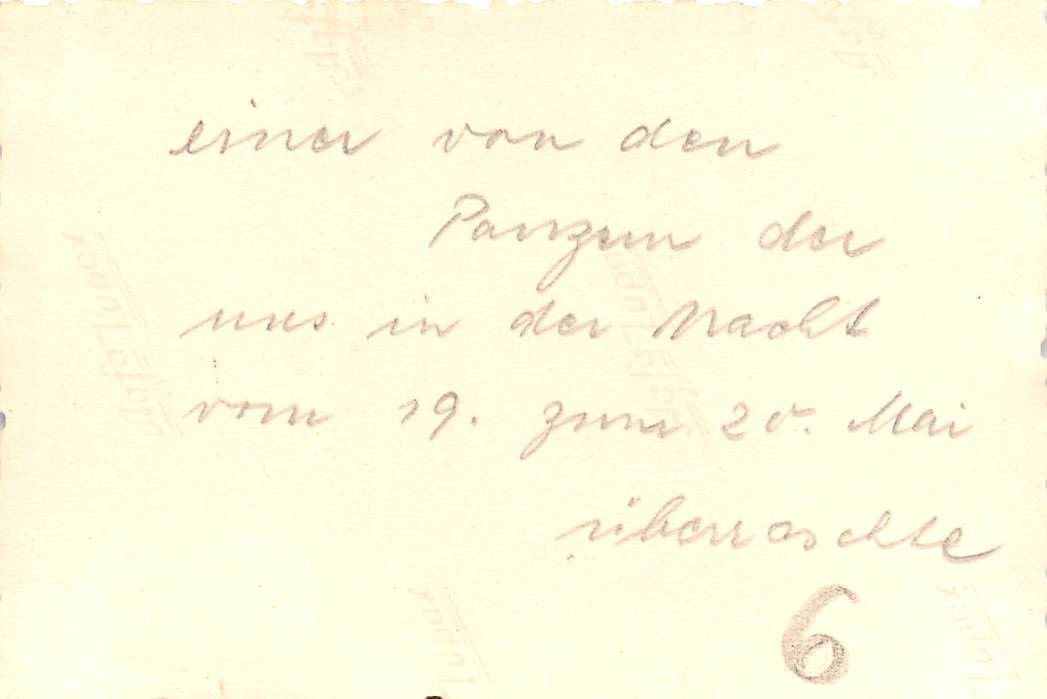 einer von den
Panzern der
uns in der Nacht
vom 19. zum 20. Mai
überraschte
6